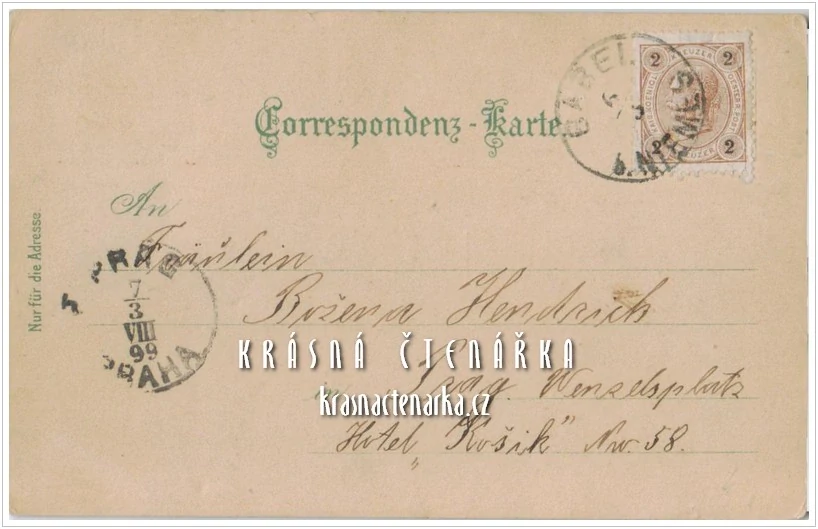 Correspondenz-Karte
GABEL
b. NIEMES
2 KREUZER 2
2 KREUZER 2
An
Fräulein
Božena Hendrich
in Prag. Wenzelsplatz
Hotel „Košik" Nro 58.
Nur für die Adresse
7
3
VIII
99
PRAHA
KRÁSNÁ ČTENÁŘKA
krasnactenarka.cz